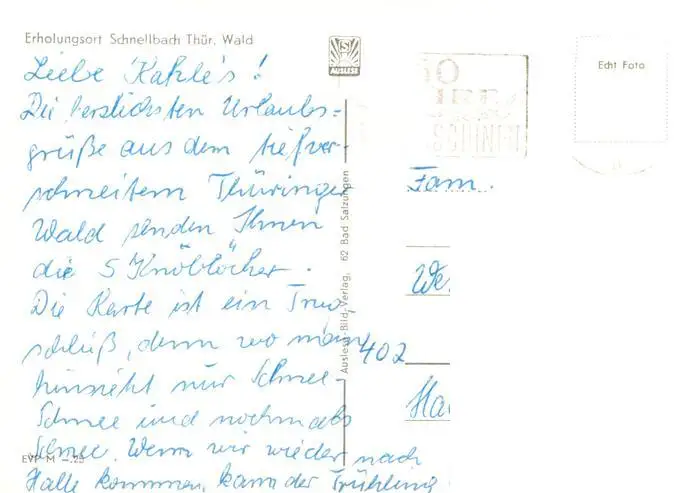 Erholungsort Schnellbach Thür. Wald
Liebe Kahle's!
Die herzlichsten Urlaubs=
grüße aus dem tiefver-
schneitem Thüringer
Wald senden Ihnen
die 5 Knöblöcher.
Die Karte ist ein Trug
schluß, denn wo man
hinsieht nur Schnee -
Schnee und nochmals
Schnee. Wenn wir wieder nach
Halle kommen, kann der Frühling
EVP M -.25
AUSLESE
Auslese-Bild-Verlag, 62 Bad Salzungen
Echt Foto
Fam.
We
402
Ha